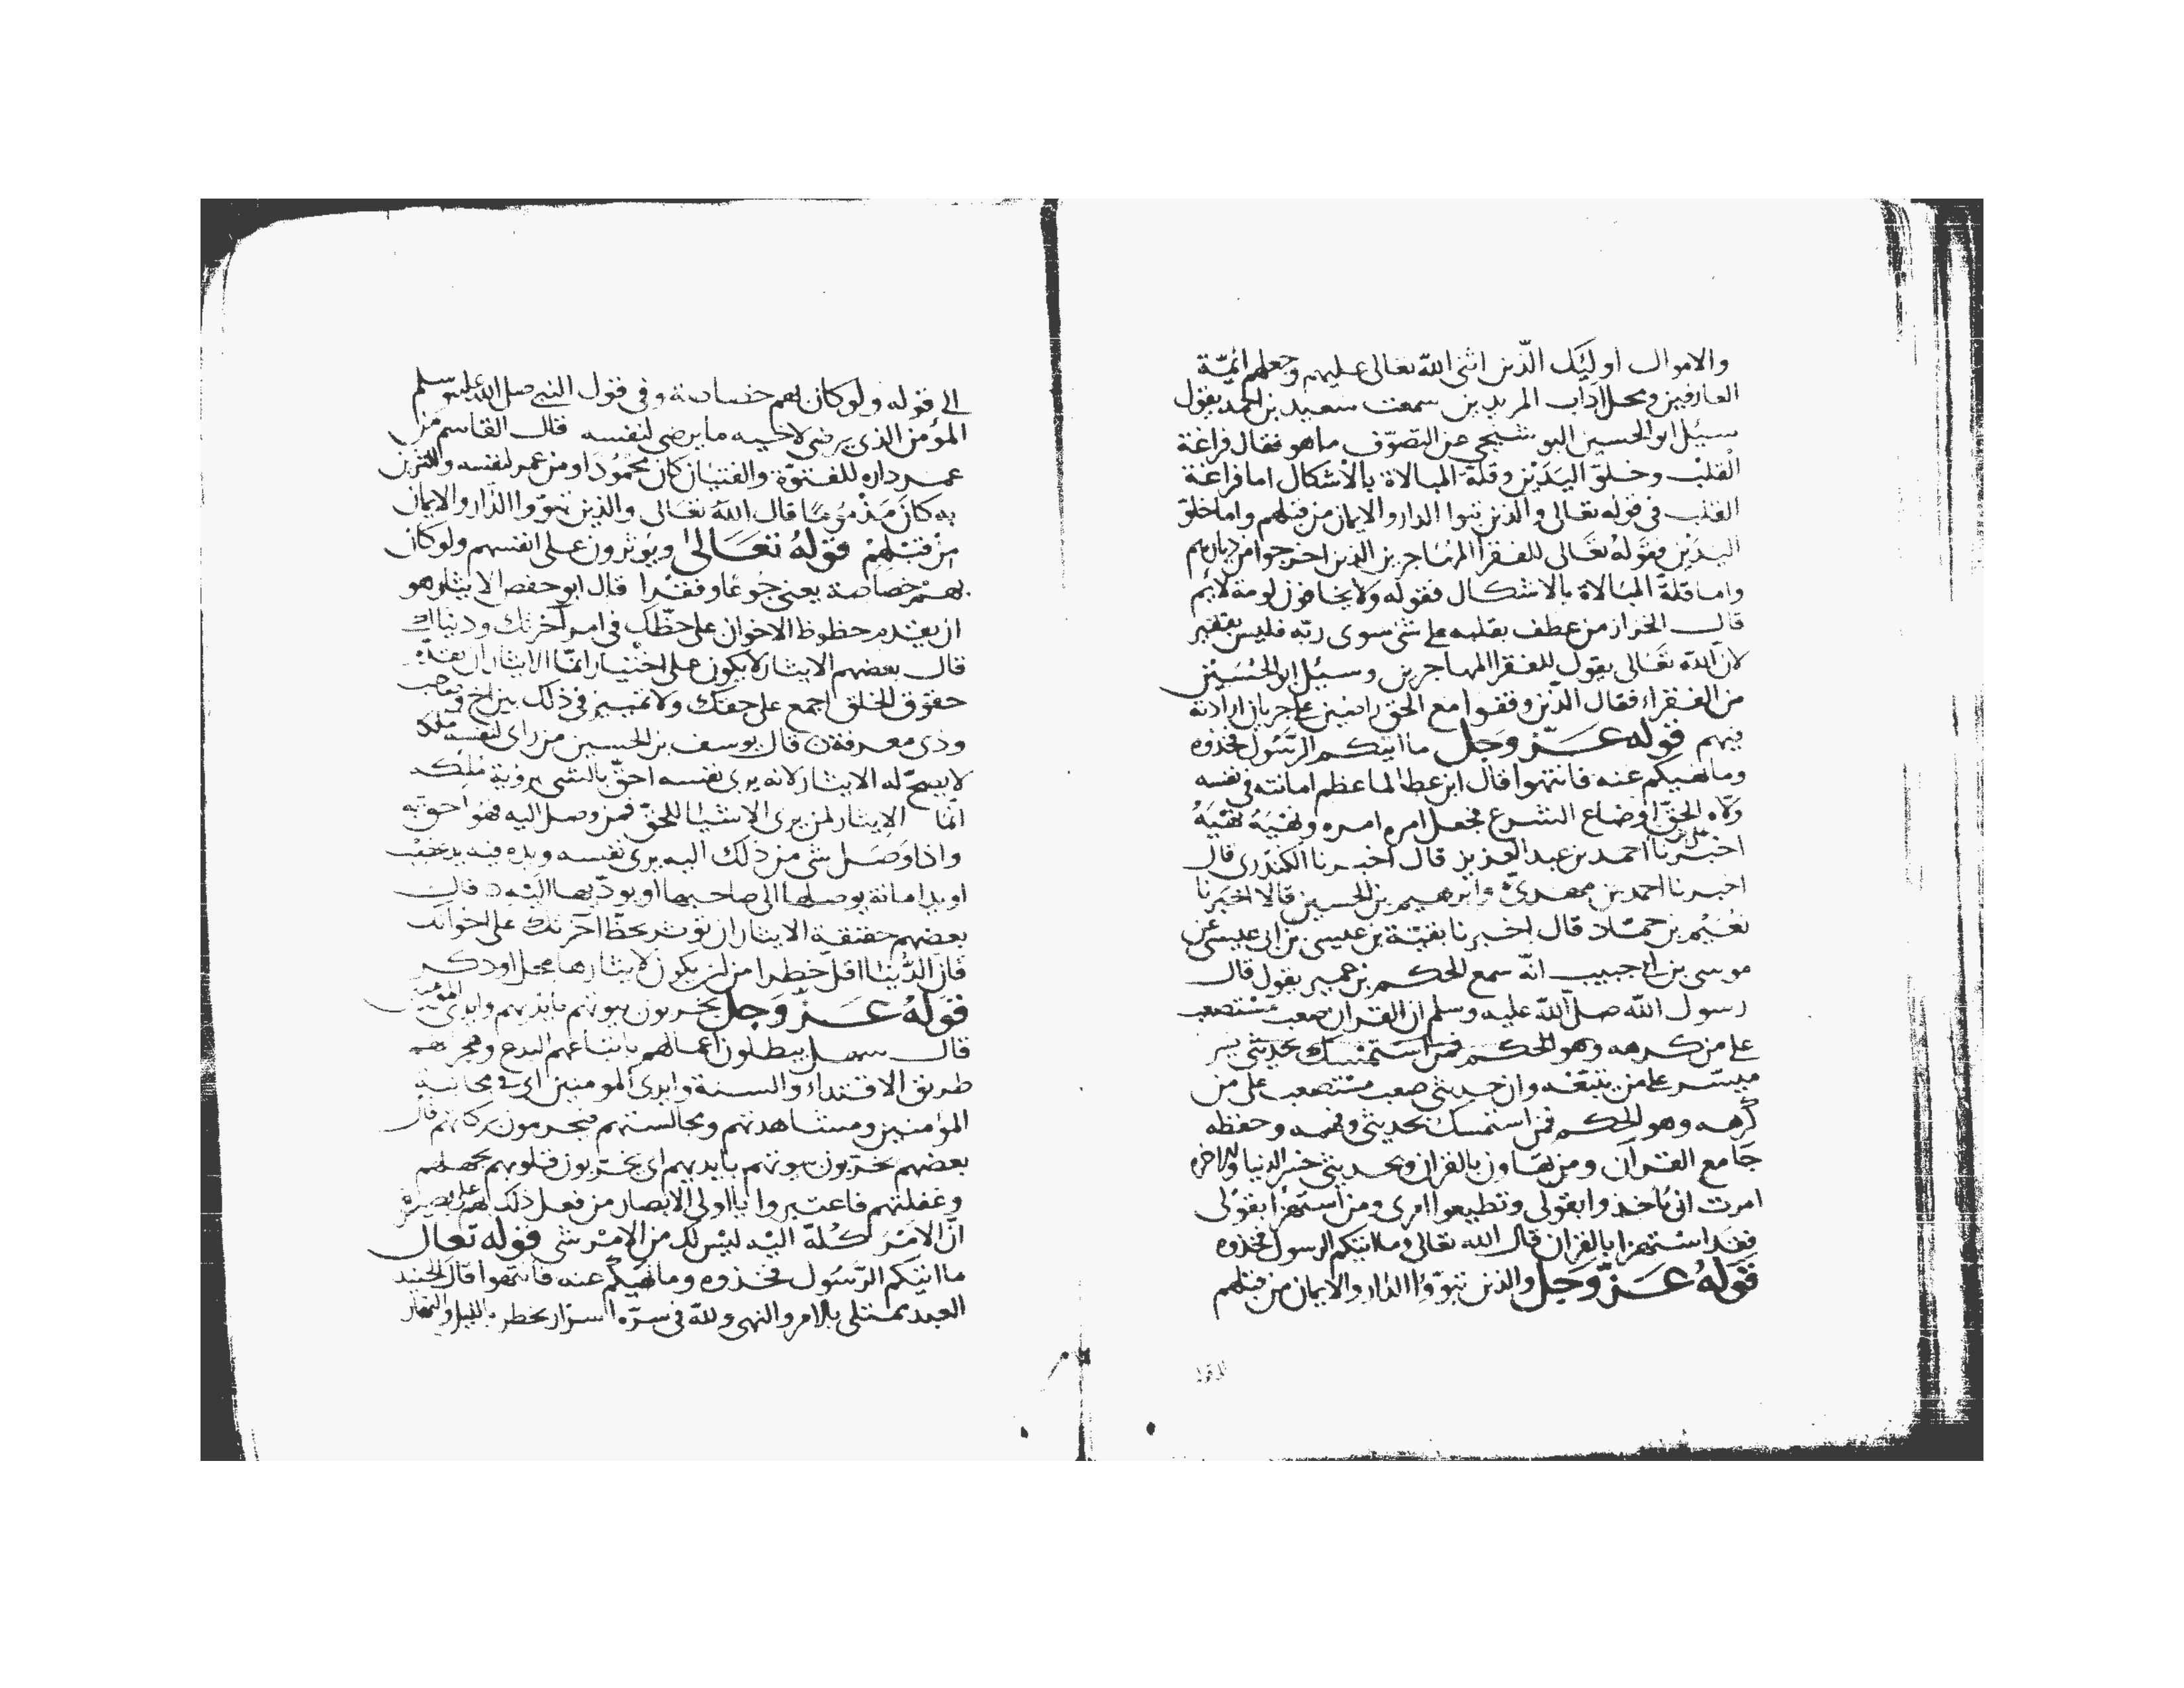 والاموال اوليك الذين اثنى الله تعالى عليهم وجعلهم ائمّة
العارفين ومحل اداب المريدين سمعت سعيد بن احمد يقول
سيل ابو الحسين البوشنجي عن التصوّف ما هو فقال فراغة
القلب وخلوّ اليدين وقلة المبالاة بالاشكال اما فراغة
القلب في قوله تعالى والذين تبوا الدار والايمان من قبلهم واما خلوّ
اليدين فقوله تعالى للفقرا المهاجرين الذين اخرجوا من ديارهم
واما قلة المبالاة بالاشكال فقوله ولا يخافون لومة لايم
قال الخراز من عطف بقلبه على شى سوى ربّه فليس بفقير
لان الله تعالى يقول للفقرا المهاجرين وسيل ابو الحسين
من الفقراء فقال الذين وقفوا مع الحق راضين على جريان ارادته
فيهم قوله عزّ وجل ما اتيكم الرسول فخذوه
وما نهيكم عنه فانتهوا قال ابن عطا لما عظم امانته في نفسه
ولّاه الحقّ اوضاع الشرع فجعل امره امره ونهيه نهيه
اخبرنا احمد بن عبد العزيز قال اخبرنا الكندرى قال
اخبرنا احمد بن مهدىّ وابرهيم بن الحسين قالا اخبرنا
نعيم بن حماد قال اخبرنا بقيّة بن عيسى بن ابى عيسى عن
موسى بن ابى حبيب انّه سمع الحكم بن عمير يقول قال
رسول الله صلى الله عليه وسلم ان القران صعب مستصعب
على من كرهه وهو الحكم فمن استمسك بحديثى
ميسّر على من يتبعه وان حديثى صعب مستصعب على من
كرهه وهو الحكم فمن استمسك بحديثى وفهمه وحفظه
جا مع القرآن ومن تهاون بالقران وبحديثى خسر الدنيا والاخره
امرت انى ياخذوا بقولى وتطيعوا امرى ومن استهزا بقولى
فقد استهزا بالقران قال الله تعالى وما اتيكم الرسول فخذوه
قوله عزّ وجل والذين تبوّوا الدار والايمان من قبلهم
الى قوله ولو كان بهم خصاصة وفى قول النبى صلى الله عليه وسلم
المؤمن الذى يرضى لاخيه ما يرضى لنفسه قال القاسم من
عمر داره للفتوّة والفتيان كان محمودا ومن عمر لنفسه والتزين
به كان مذموما قال الله تعالى والذين تبوّوا الدار والايمان
من قبلهم قوله تعالى ويؤثرون على انفسهم ولو كان
بهم خصاصة يعنى جوعا وفقرا قال ابو حفص الايثار هو
ان يقدم حظوظ الاخوان على حظّك فى امر آخرتك ودنياك
قال بعضهم الايثار لا يكون على اختيار انّما الايثار ان تقدّم
حقوق الخلق اجمع على حقك ولا تميّز فى ذلك بين اخ وصاحب
وذى معرفة قال يوسف بن الحسين من راى لنفسه ملكا
لا يصحّ له الايثار لانه يرى نفسه احقّ بالشى برؤية ملكه
انّما الايثار لمن يرى الاشيا للحقّ فمن وصل اليه فهو احق به
واذا وصل شى من ذلك اليه يرى نفسه ويده فيه يد غصب
او يد امانة يوصلها الى صاحبها او يودّيها اليه قال
بعضهم حقيقة الايثار ان توثر بحظّ آخرتك على اخوانك
فان الدّنيا اقلّ خطرا من ان يكون لايثارها محل او ذكر
قوله عزّ وجل يخربون بيوتهم بايديهم وايدى المؤمنين
قال سهل يبطلون اعمالهم باتباعهم البدع وهجرهم
طريق الاقتداء والسنة وايدى المومنين اى فى مجانبة
المؤمنين ومشاهدتهم ومجالستهم فيحرمون بركاتهم قال
بعضهم يخربون بيوتهم بايديهم اى يخرّبون قلوبهم بجهلهم
وغفلتهم فاعتبروا يا اولى الابصار من فعل ذلك
انّ الامر كلّه اليه ليس لك من الامر شى قوله تعالى
ما اتيكم الرّسول فخذوه وما نهيكم عنه فانتهوا قال الجنيد
العبد ممتلى بالامر والنهى ولله فى سرّه اسرار يخطر بالليل والنهار